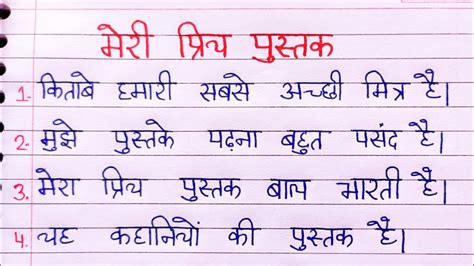 मेरी प्रिय पुस्तक
1. किताबे हमारी सबसे अच्छी मित्र है।
2. मुझे पुस्तके पढ़ना बहुत पसंद है।
3. मेरा प्रिय पुस्तक बाल भारती है।
4. यह कहानियों की पुस्तक है।